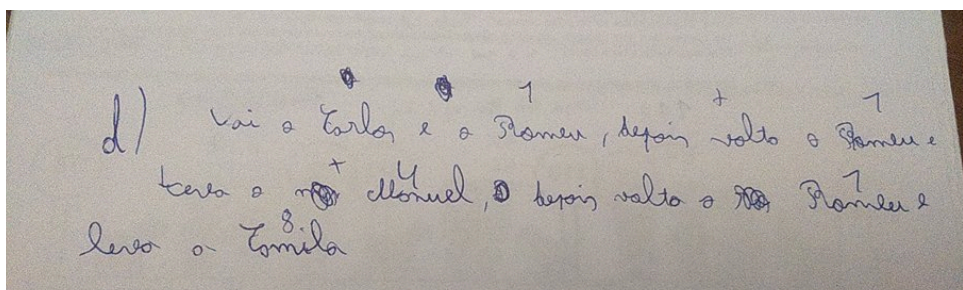 1 + 1
d) Vai o Carlos e o Romeu, depois volta o Romeu e
+ 4 1
leva o Manuel, depois volta o Romeu e
8
leva a Camila